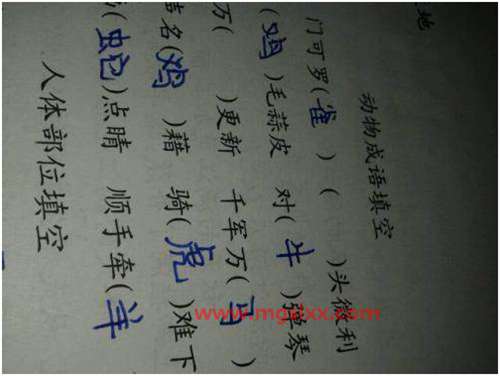 地
动物成语填空
门可罗(雀) ( )头微利
(鸡)毛蒜皮 对(牛)弹琴
万( )更新 千军万(马)
名(鸡)籍 骑(虎)难下
(蛇)点睛 顺手牵(羊
人体部位填空